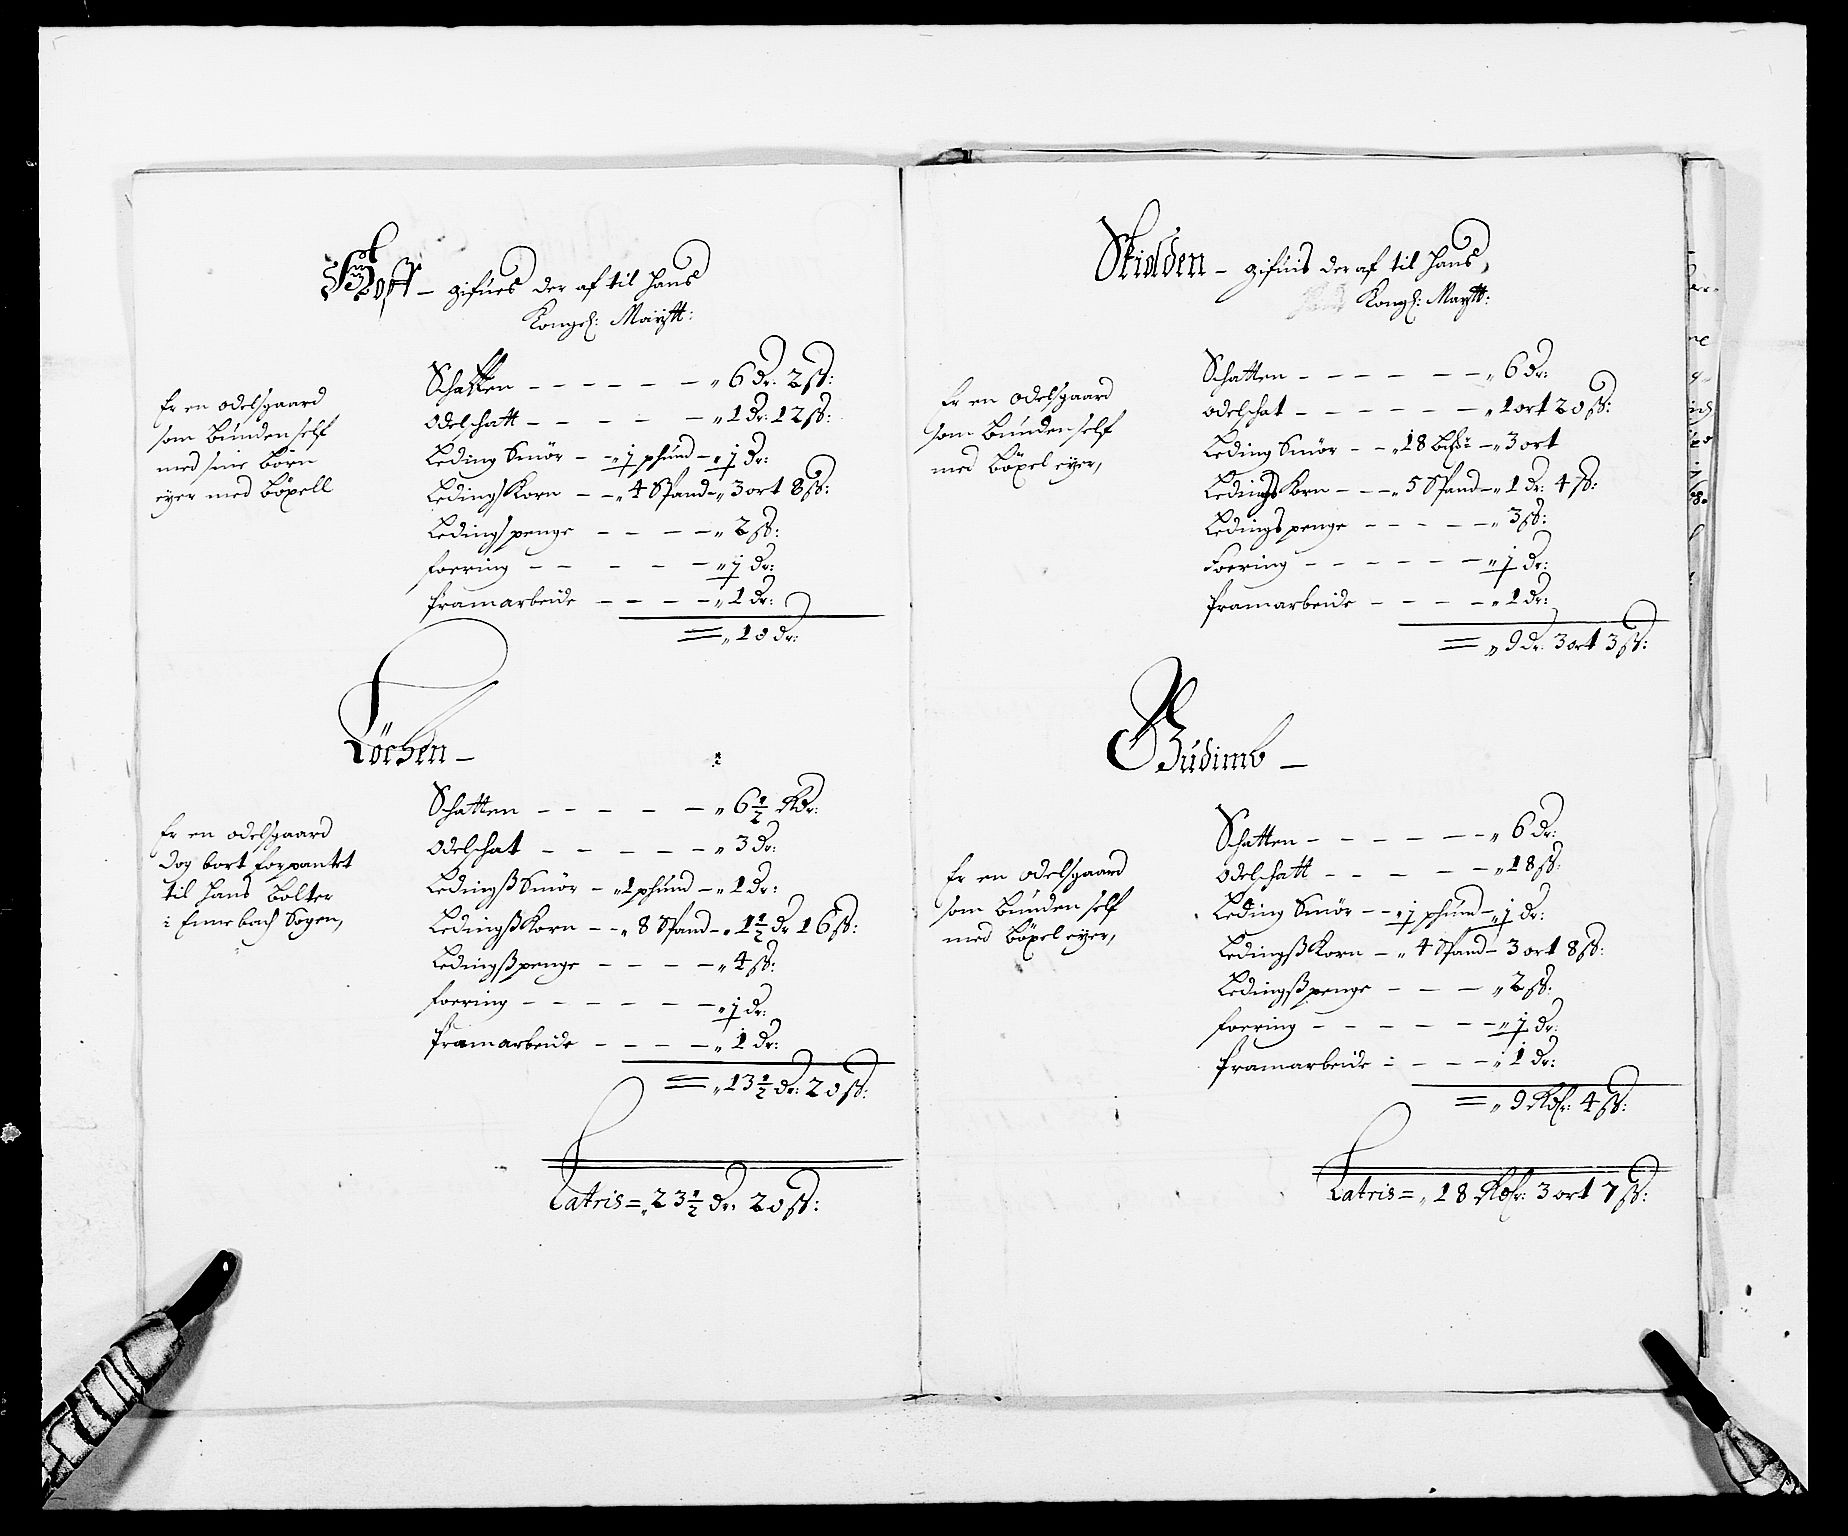 Hoff – gifues der af til Hans
Kongel: Maÿtt:
Er en odelsgaard
som Bunden self
med sine børn
eÿer med Bøxell
Schatten – – – – – – „ 6 Dr. 2 ß:
odelschatt – – – – – „ 1 Dr: 12 ß:
Leding Smör – „ j phund – „ j Dr:
Ledings Korn – – „ 4 Spand – „ 3 ort 8 ß:
Ledings penge – – – – „ 2 ß:
foering – – – – – „ j Dr:
framarbeide – – – – „ 1 Dr:
= „ 10 Dr:
Löchen –
Er en odelsgaard
dog bort forpantet
til Hans Bolter
i Ennebach Sogen,
Schatten – – – – – – „ 6 1/2 Rdr:
odelschat – – – – – – „ 3 Dr:
Ledingß Smör – „ 1 phund – „ 1 Dr:
Ledingß Korn – – „ 8 Spand – „ 1 1/2 Dr 16 ß:
Ledingß penge – – – – „ 4 ß:
foering – – – – – – „ j Dr:
framarbeide – – – – „ 1 Dr:
= „ 13 1/2 Dr: 20 ß:
Latris = „ 23 1/2 Dr: 20 ß:
Skidden – gifuis der af til Hans,
Kongl: Maytt:
Er en odelsgaard
som Bunden self
med Böxel eÿer,
Schatten – – – – – – „ 6 Dr:
odelschat – – – – – – „ 1 ort 20 ß:
Leding Smör – – „ 18 – „ 3 ort
Ledings Korn – – – „ 5 Spand – „ 1 Dr: 4 ß:
Ledings penge – – – – – „ 3 ß:
Foering – – – – – – „ j Dr:
framarbeide – – – – „ 1 Dr:
= „ 9 Dr. 3 ort 3 ß:
Budimb –
Er en odelsgaard
som Bunden self
med Böxel eÿer,
Schatten – – – – – – „ 6 Dr:
odelschatt – – – – – „ 18 ß:
Leding Smör – – „ j phund – „ j Dr:
Ledingß Korn – „ 4 Spand – 3 ort 8 ß:
Ledingß penge – – – „ 2 ß:
foering – – – – – – „ j Dr:
framarbeide – – – – „ 1 Dr:
= „ 9 Rdlr: 4 ß:
Latris = „ 18 Rdlr: 3 ort 7 ß: